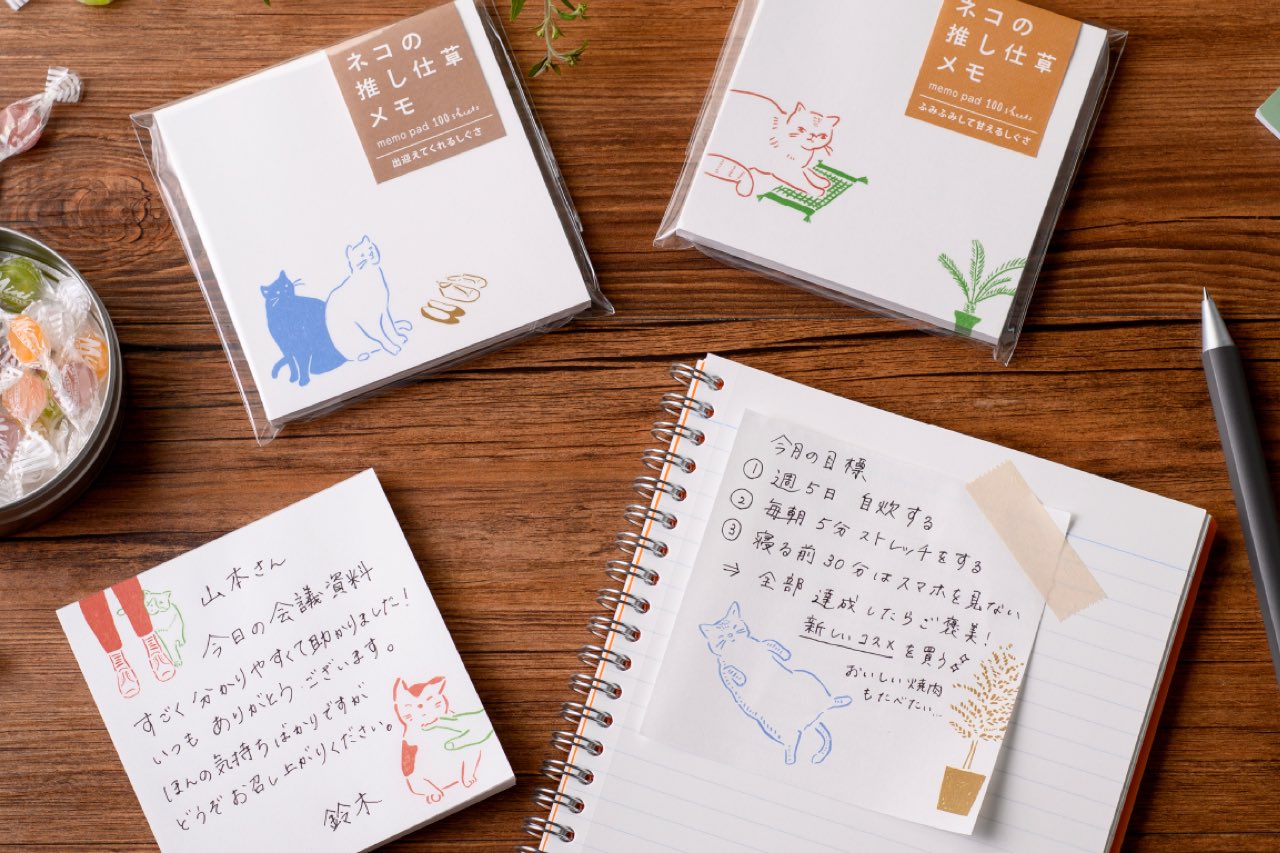 ネコの
推し仕草
メモ
memo pad 100 sheets
出迎えてくれるしぐさ
ネコの
推し仕草
メモ
memo pad 100 sheets
ふみふみして甘えるしぐさ
山本さん
今日の会議資料
すごく分かりやすくて助かりました!
いつもありがとうございます。
ほんの気持ちばかりですが
どうぞお召し上がりください。
鈴木
今月の目標
① 週5日 自炊する
② 毎朝5分ストレッチをする
③ 寝る前30分はスマホを見ない
⇒ 全部達成したらご褒美!
新しいコスメを買う
おいしい焼肉
もたべたい…